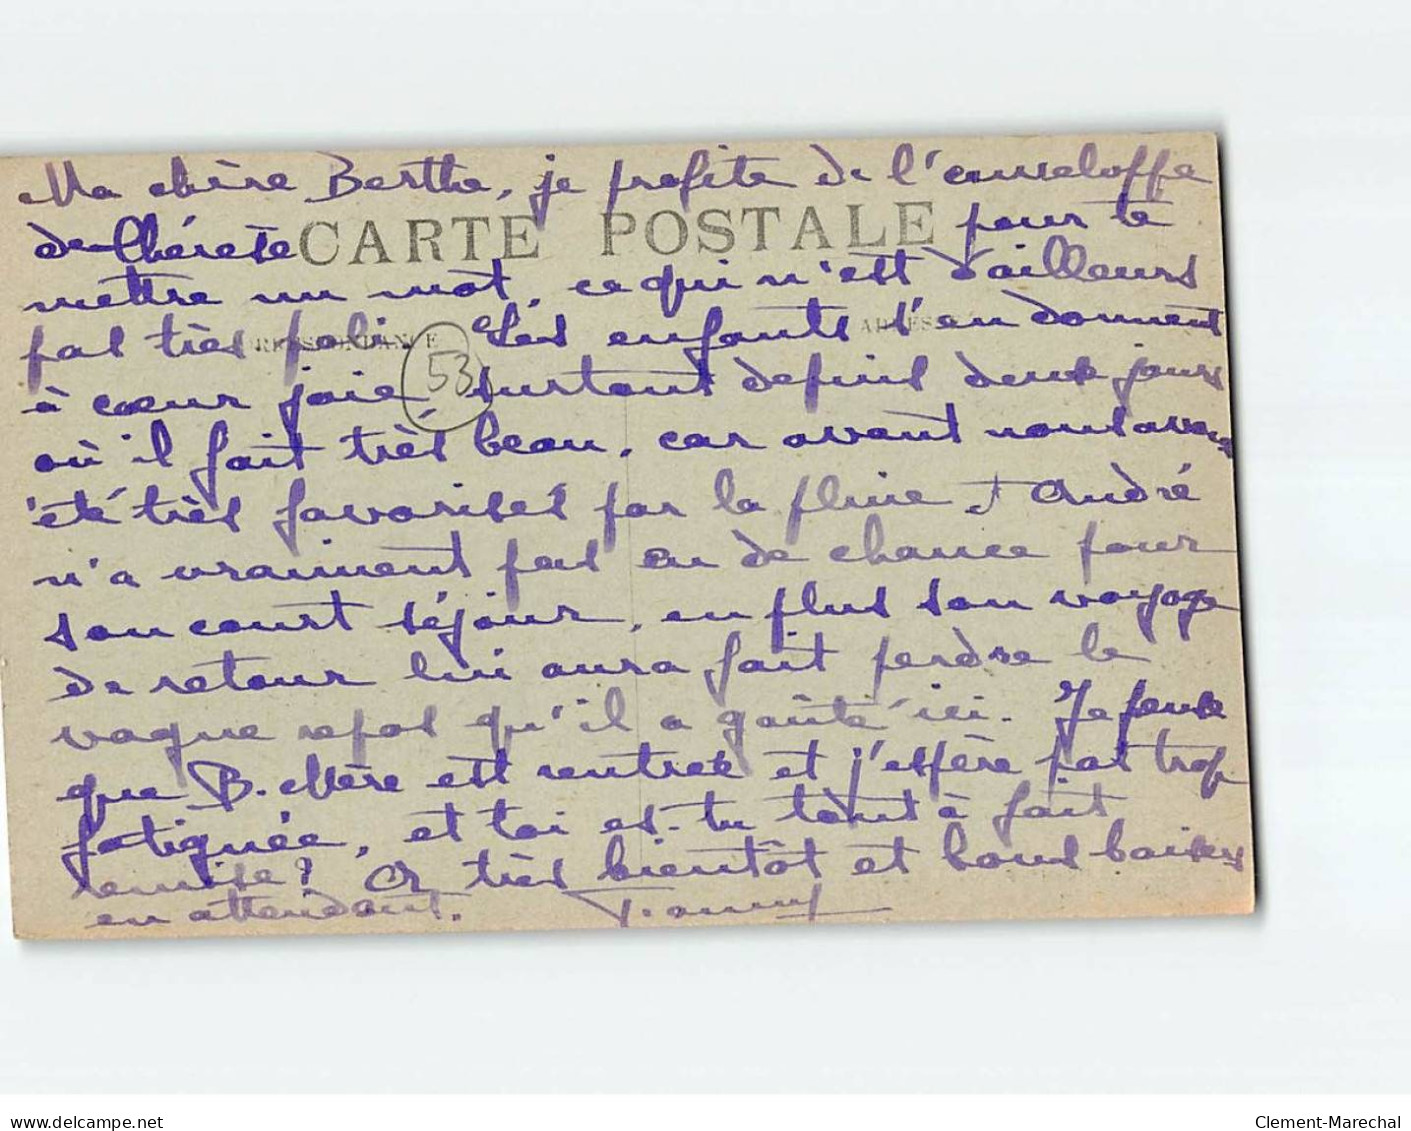 Ma chère Berthe, je profite de l'enveloppe
de Thérèse CARTE POSTALE pour te
mettre un mot, ce qui n'est d'ailleurs
pas très poli. Les enfants s'en donnent
à cœur joie, surtout depuis deux jours
53
où il fait très beau, car avant nous avons
été très favorisés par la pluie et André
n'a vraiment pas eu de chance pour
son court séjour, en plus son voyage
de retour lui aura fait perdre le
vague repos qu'il a goûté ici. Je pense
que B. Mère est rentrée et j'espère pas trop
fatiguée, et toi es-tu tout à fait
remise? A très bientôt et bons baisers
en attendant.
delcampe.net
Clement-Marechal